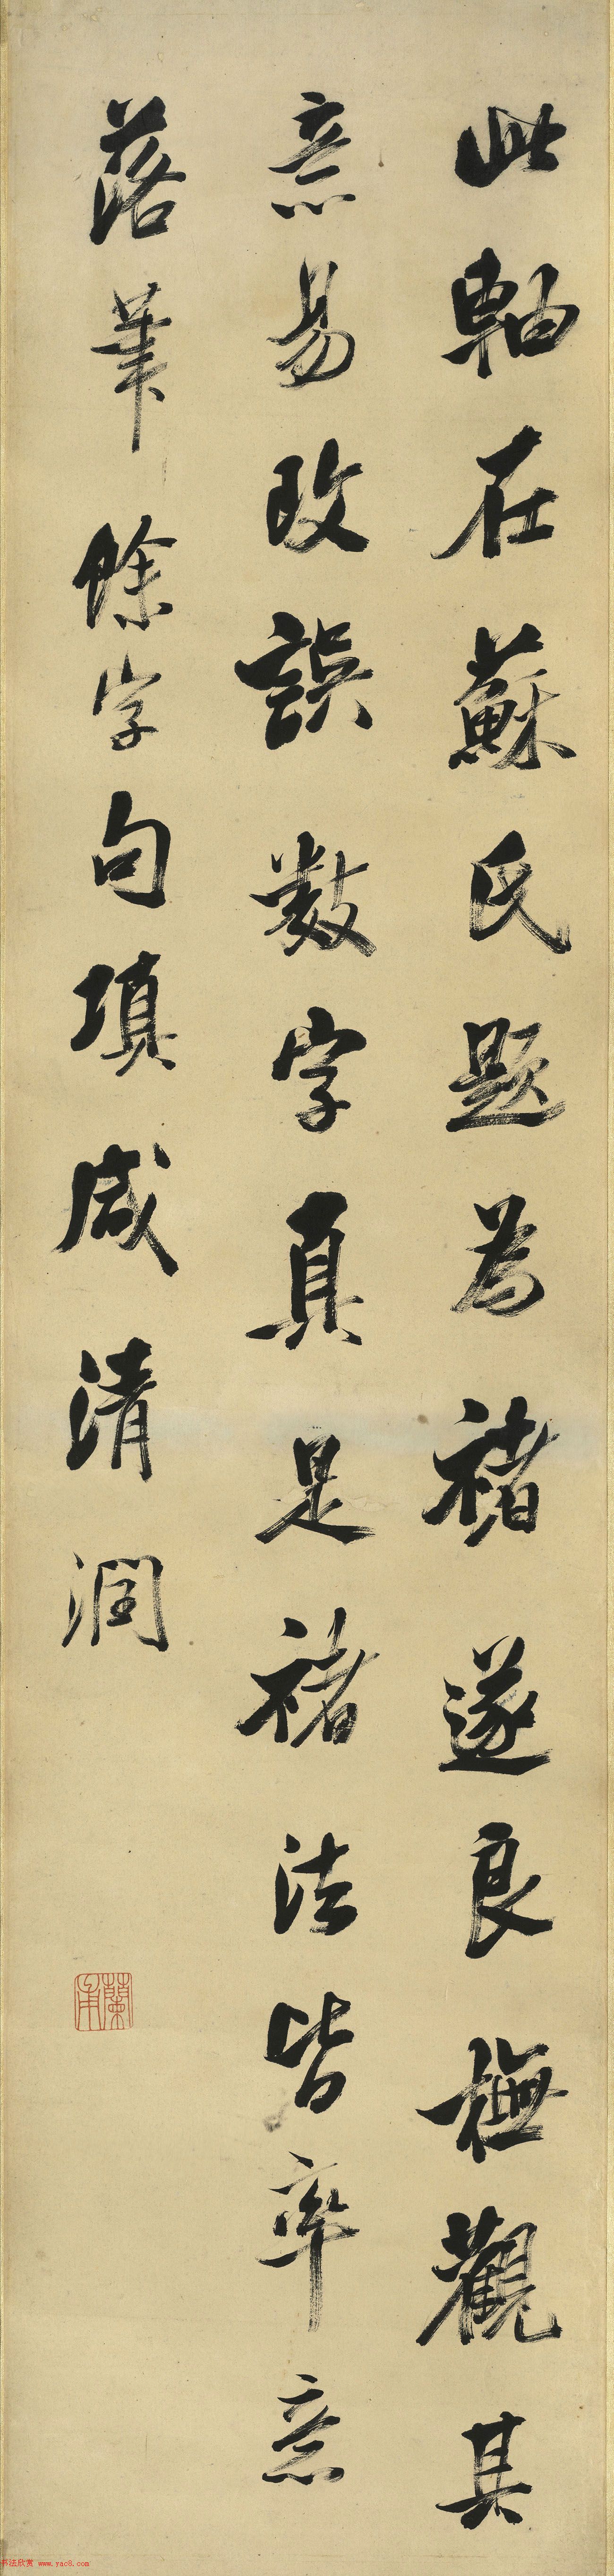 此軸在蘇氏題為褚遂良橅觀其
意易改誤數字真是褚法皆率意
落筆餘字句填咸清潤
蘭甫
书法欣赏 www.yac8.com